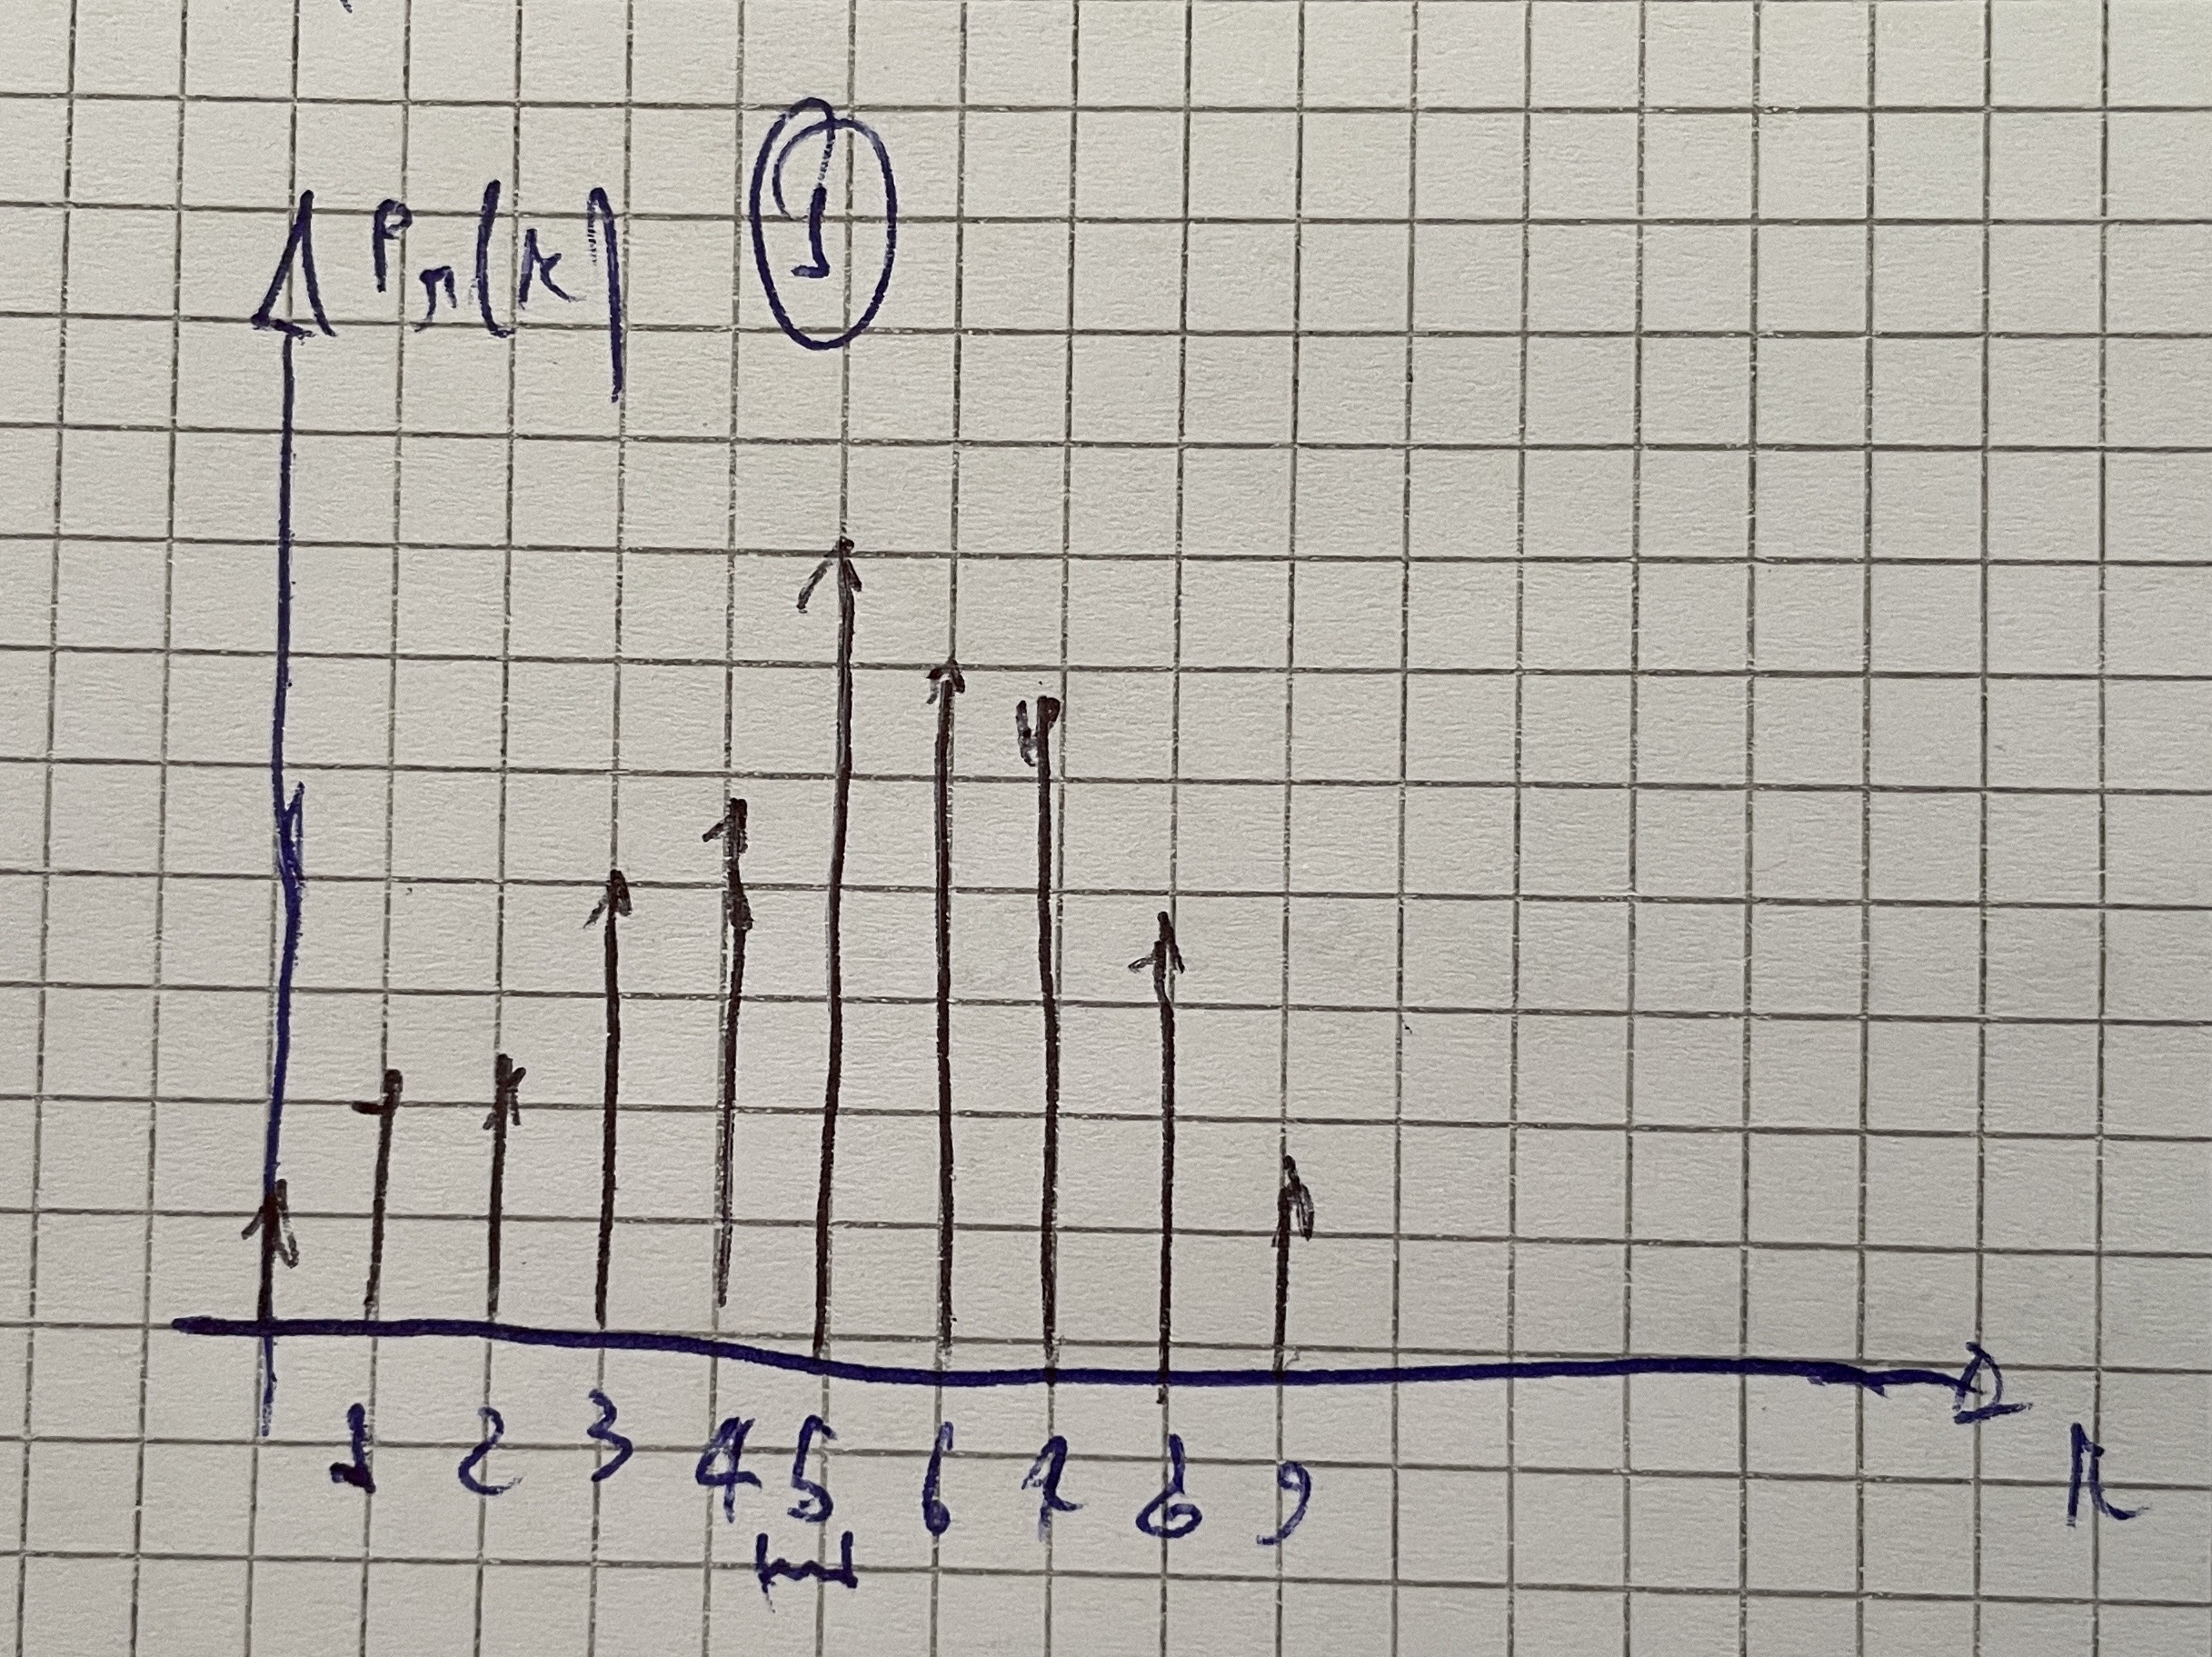 Pn(k) 1
1 2 3 4 5 6 7 8 9 k
m